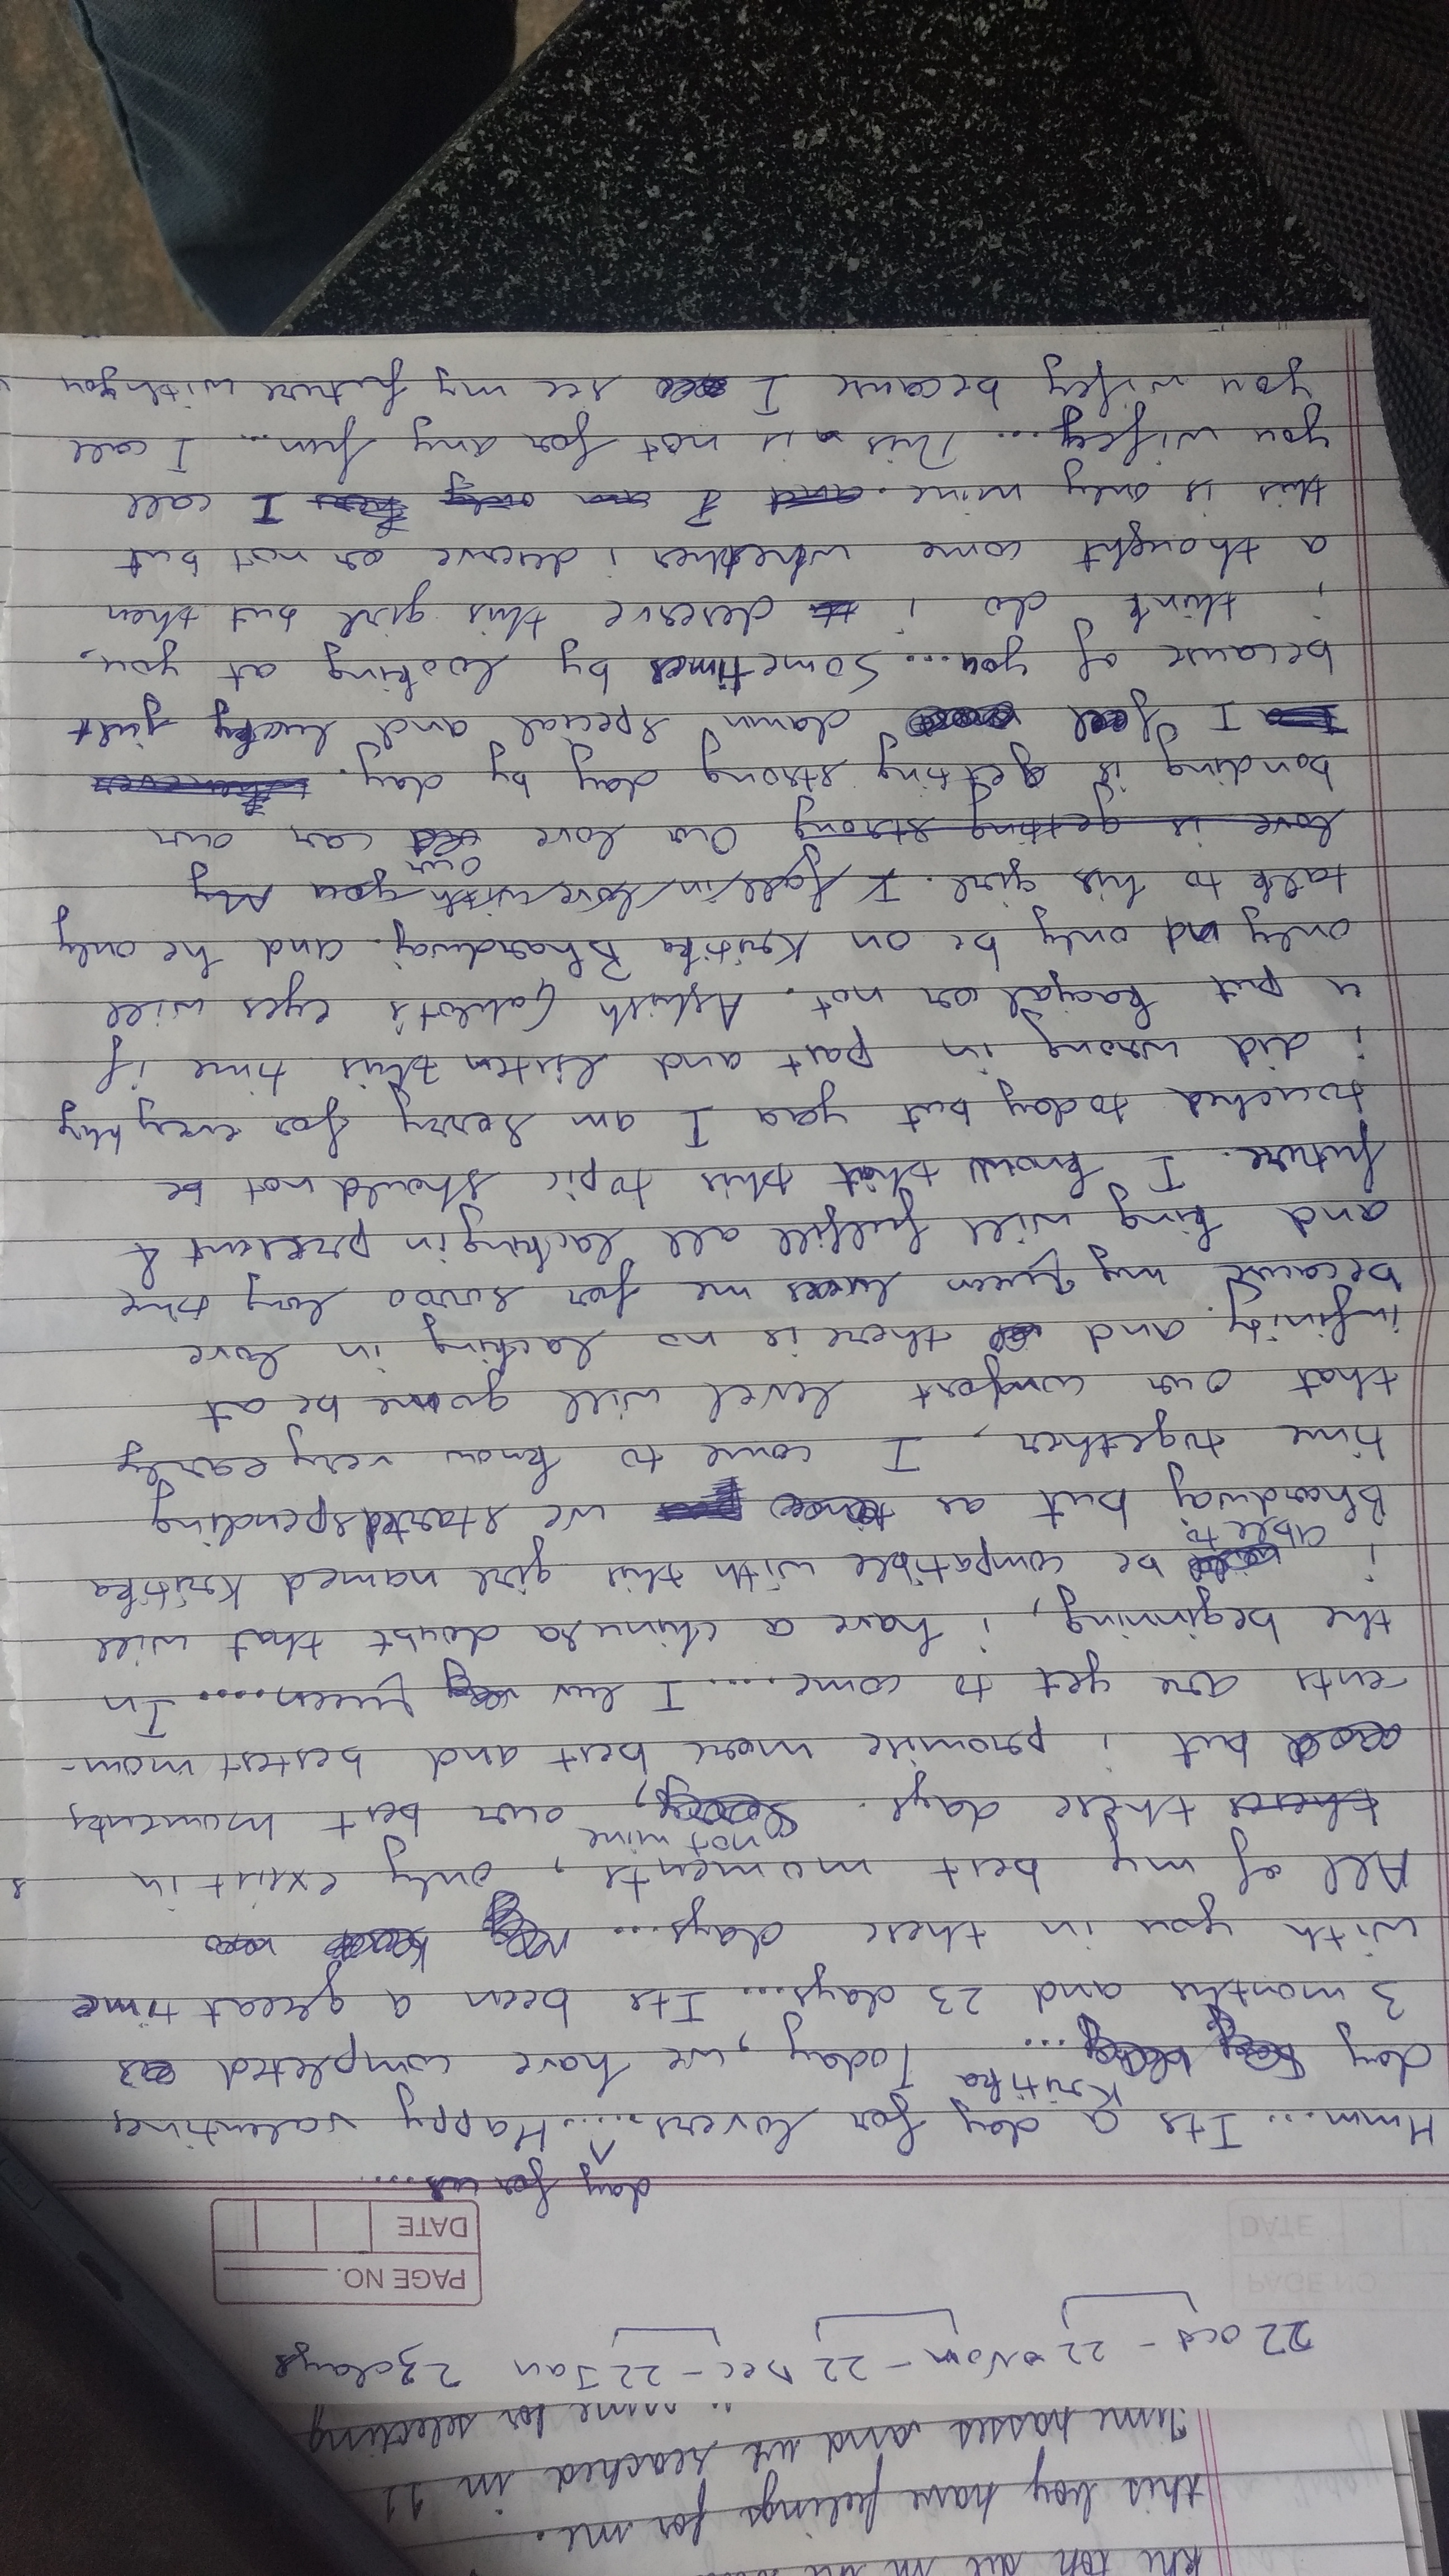 khi toh dil
this boy have feelings for me.
Time passes and we reached in 11
name for selecting
22 oct - 22 Nom - 22 Dec - 22 Jan 23 days
PAGE NO.
DATE
day for us....
Hmm... Its a day for lovers..... Happy valentines
day Kritika ... Today, we have completed
3 months and 23 days... Its been a great time
with you in these days...
All of my best moments, only exsist in
theres these days. Sorry, not mine our best moments
but i promise more best and bestest mom-
-ents are yet to come.... I luv Queen.... In
the beginning, i have a chinu sa doubt that will
i able to be compatible with this girl named Kritika
Bhardwaj but as we started spending
time together, I come to know very early
that our comfort level will gonne be at
infinity. and there is no lacking in love
because my Queen loves me for soooo long time
and king will fulfill all lacking in present &
future. I know that this topic should not be
touched today but yaa I am sorry for everything
i did wrong in past and listen this time if
u put kaajal or not. Ashish Gahlot's eyes will
only nd only be on Kritika Bhardwaj. and he only
talk to his girl. I fall in love with you My
love is getting strong Our love our car our
bonding is getting strong day by day. Whenever
I feel damn special and lucky just
because of you... Sometimes by looking at you,
i think do i deserve this girl but then
a thought come whether i deserve or not but
this is only mine. and I am only hers I call
you wifey... This is not for any fun... I call
you wifey because I see my future with you